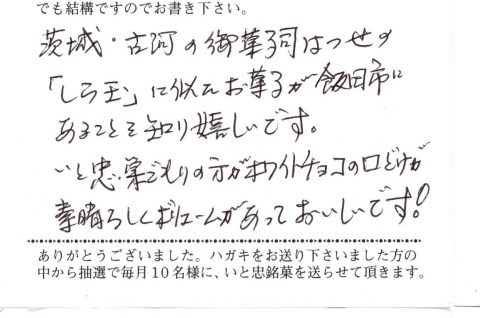 でも結構ですのでお書き下さい。
茨城・古河の御菓子司はつせの
「しら玉」に似たお菓子が飯田市に
あることを知り嬉しいです。
いと忠・巣ごもりの方がホワイトチョコの口どけが
素晴らしくボリュームがあっておいしいです!
ありがとうございました。ハガキをお送り下さいました方の
中から抽選で毎月10名様に、いと忠銘菓を送らせて頂きます。